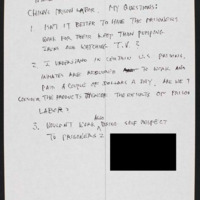 CHINESE PRISON LABOR. MY QUESTIONS:
1. ISN'T IT BETTER TO HAVE THE PRISONERS
WORK FOR THEIR KEEP THAN PUMPING
IRON AND WATCHING T.V.?
2. I UNDERSTAND IN CERTAIN U.S. PRISONS,
INMATES ARE REQUIRED TO WORK AND
PAID A COUPLE OF DOLLARS A DAY. ARE WE TO
CONSIDER THE PRODUCTS THE RESULTS OF PRISON
LABOR?
3. WOULDN'T WORK ALSO BRING SELF RESPECT
TO PRISONERS?